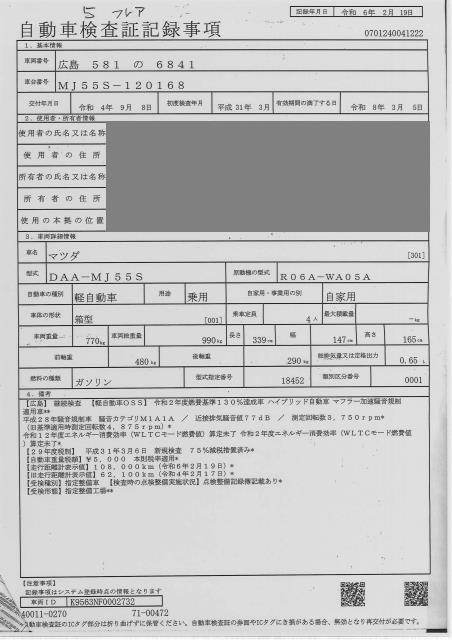 5 フレア
記録年月日 令和 6年 2月 19日
自動車検査証記録事項
0701240041222
1. 基本情報
車両番号 広島 581 の 6841
車台番号 MJ55S-120168
交付年月日 令和 4年 9月 8日 初度検査年月 平成31年 3月 有効期間の満了する日 令和 8年 3月 5日
2. 使用者・所有者情報
使用者の氏名又は名称
使用者の住所
所有者の氏名又は名称
所有者の住所
使用の本拠の位置
3. 車両詳細情報
車名 マツダ [301]
型式 DAA-MJ55S 原動機の型式 R06A-WA05A
自動車の種別 軽自動車 用途 乗用 自家用・事業用の別 自家用
車体の形状 箱型 [001] 乗車定員 4人 最大積載量 -kg
車両重量 770kg 車両総重量 990kg 長さ 339cm 幅 147cm 高さ 165cm
前軸重 480kg 後軸重 290kg 総排気量又は定格出力 0.65L
燃料の種類 ガソリン 型式指定番号 18452 類別区分番号 0001
4. 備考
【広島】 継続検査 【軽自動車OSS】 令和2年度燃費基準130%達成車 ハイブリッド自動車 マフラー加速騒音規制
適用車**
平成28年騒音規制車 騒音カテゴリM1A1A / 近接排気騒音値77dB / 測定回転数3,750rpm*
(旧基準適用時測定回転数4,875rpm)*
令和12年度エネルギー消費効率(WLTCモード燃費値)算定未了 令和2年度エネルギー消費効率(WLTCモード燃費値
)算定未了*
【29年度税制】 平成31年3月6日 新規検査 75%減税措置済み*
【自動車重量税額】¥5,000 本則税率適用*
【走行距離計表示値】108,000km(令和6年2月19日)*
【旧走行距離計表示値】62,100km(令和4年2月17日)*
【受検種別】指定整備車 【検査時の点検整備実施状況】点検整備記録簿記載あり*
【受検形態】指定整備工場**
【注意事項】
記録事項はシステム登録時点の情報となります
車両ID K9563NF0002732
40011-0270 71-00472
自動車検査証のICタグ部分は折り曲げずに保管ください。自動車検査証の券面やICタグにき損がある場合、無効となり再交付が必要です。